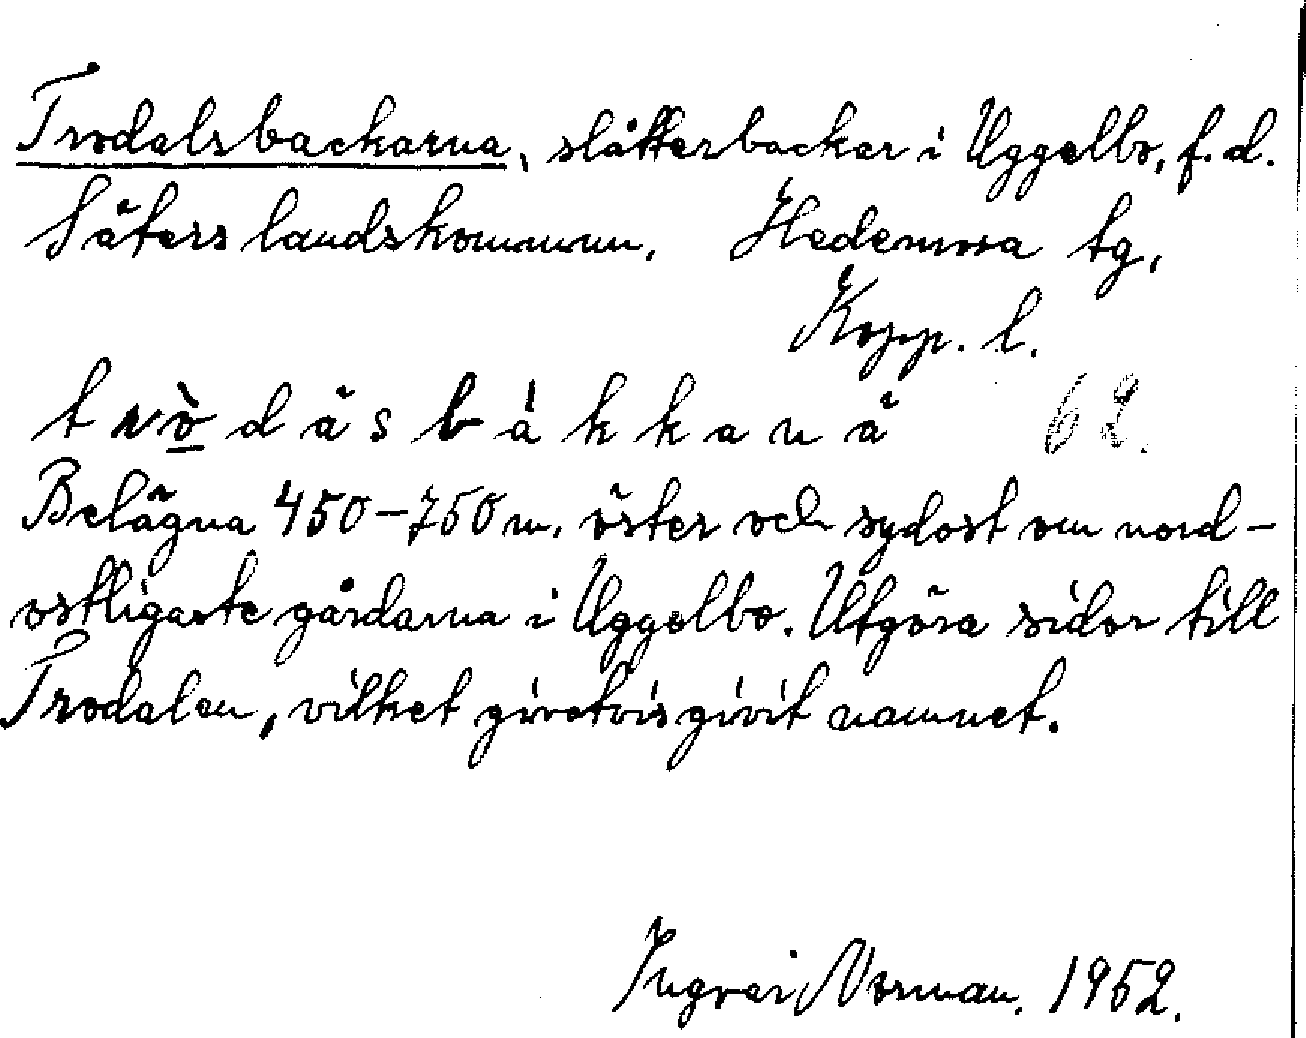 Trodalsbackarna, slåtterbackar i Uggelbo, f. d.
Säters landskommun. Hedemora tg,
Kopp. l.
t r ò d ä s b á k k a n ä 62.
Belägna 450-750 m. öster och sydost om nord-
ostligaste gårdarna i Uggelbo. Utgöra sidor till
Trodalen, vilket givetvis givit namnet.
Ingvar Norman. 1952.